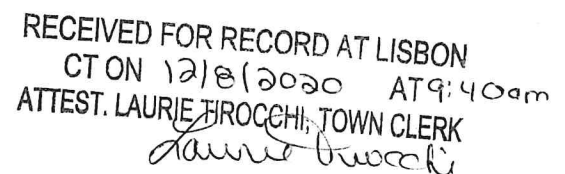 RECEIVED FOR RECORD AT LISBON
CT ON 12/8/2020 AT 9:40am
ATTEST. LAURIE TIROCCHI, TOWN CLERK
Laurie Tirocchi